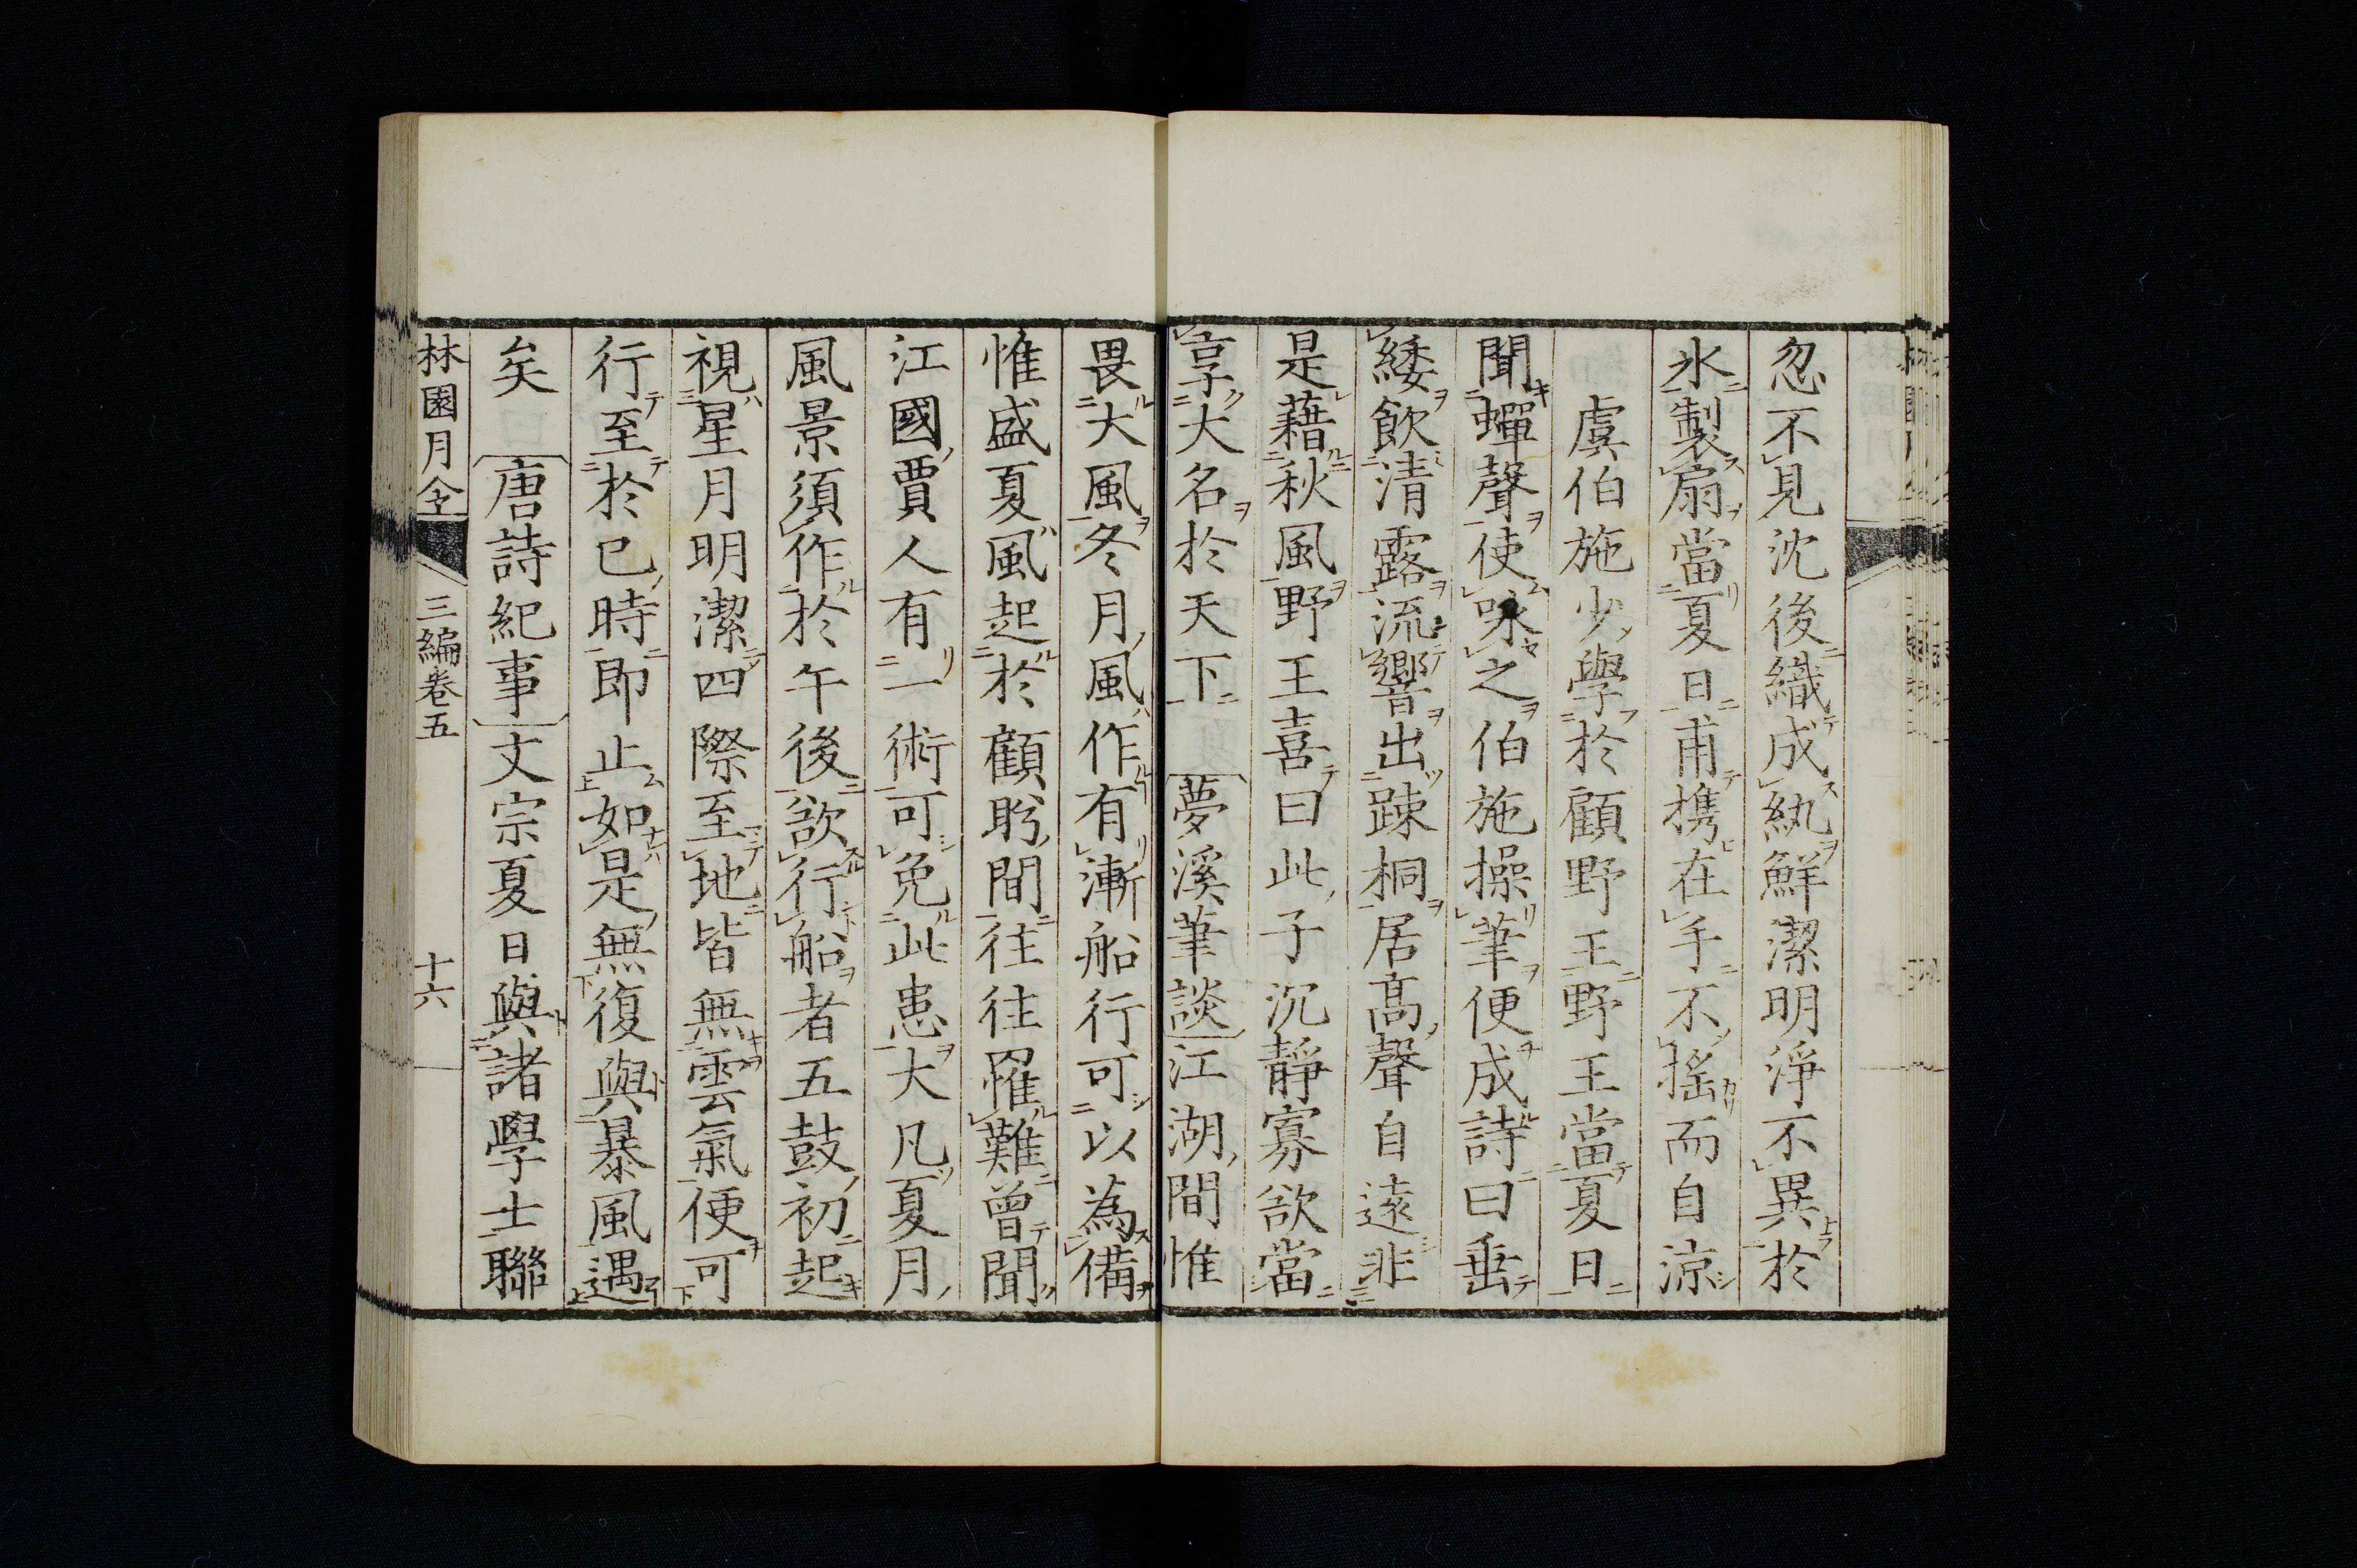 忽不見沈後織成紈鮮潔明淨不異於
氷製扇當夏日甫携在手不搖而自涼
虞伯施少學於顧野王野王當夏日
聞蟬聲使咏之伯施操筆便成詩曰垂
緌飲清露流響出踈桐居高聲自遠非
是藉秋風野王喜曰此子沉靜寡欲當
享大名於天下 夢溪筆談 江湖間惟
畏大風冬月風作有漸船行可以為備
惟盛夏風起於顧盻間往往罹難曾聞
江國賈人有一術可免此患大凡夏月
風景須作於午後欲行船者五鼓初起
視星月明潔四際至地皆無雲氣便可
行至於巳時即止如是無復與暴風遇
矣 唐詩紀事 文宗夏日與諸學士聯
林園月令 三編卷五 十六